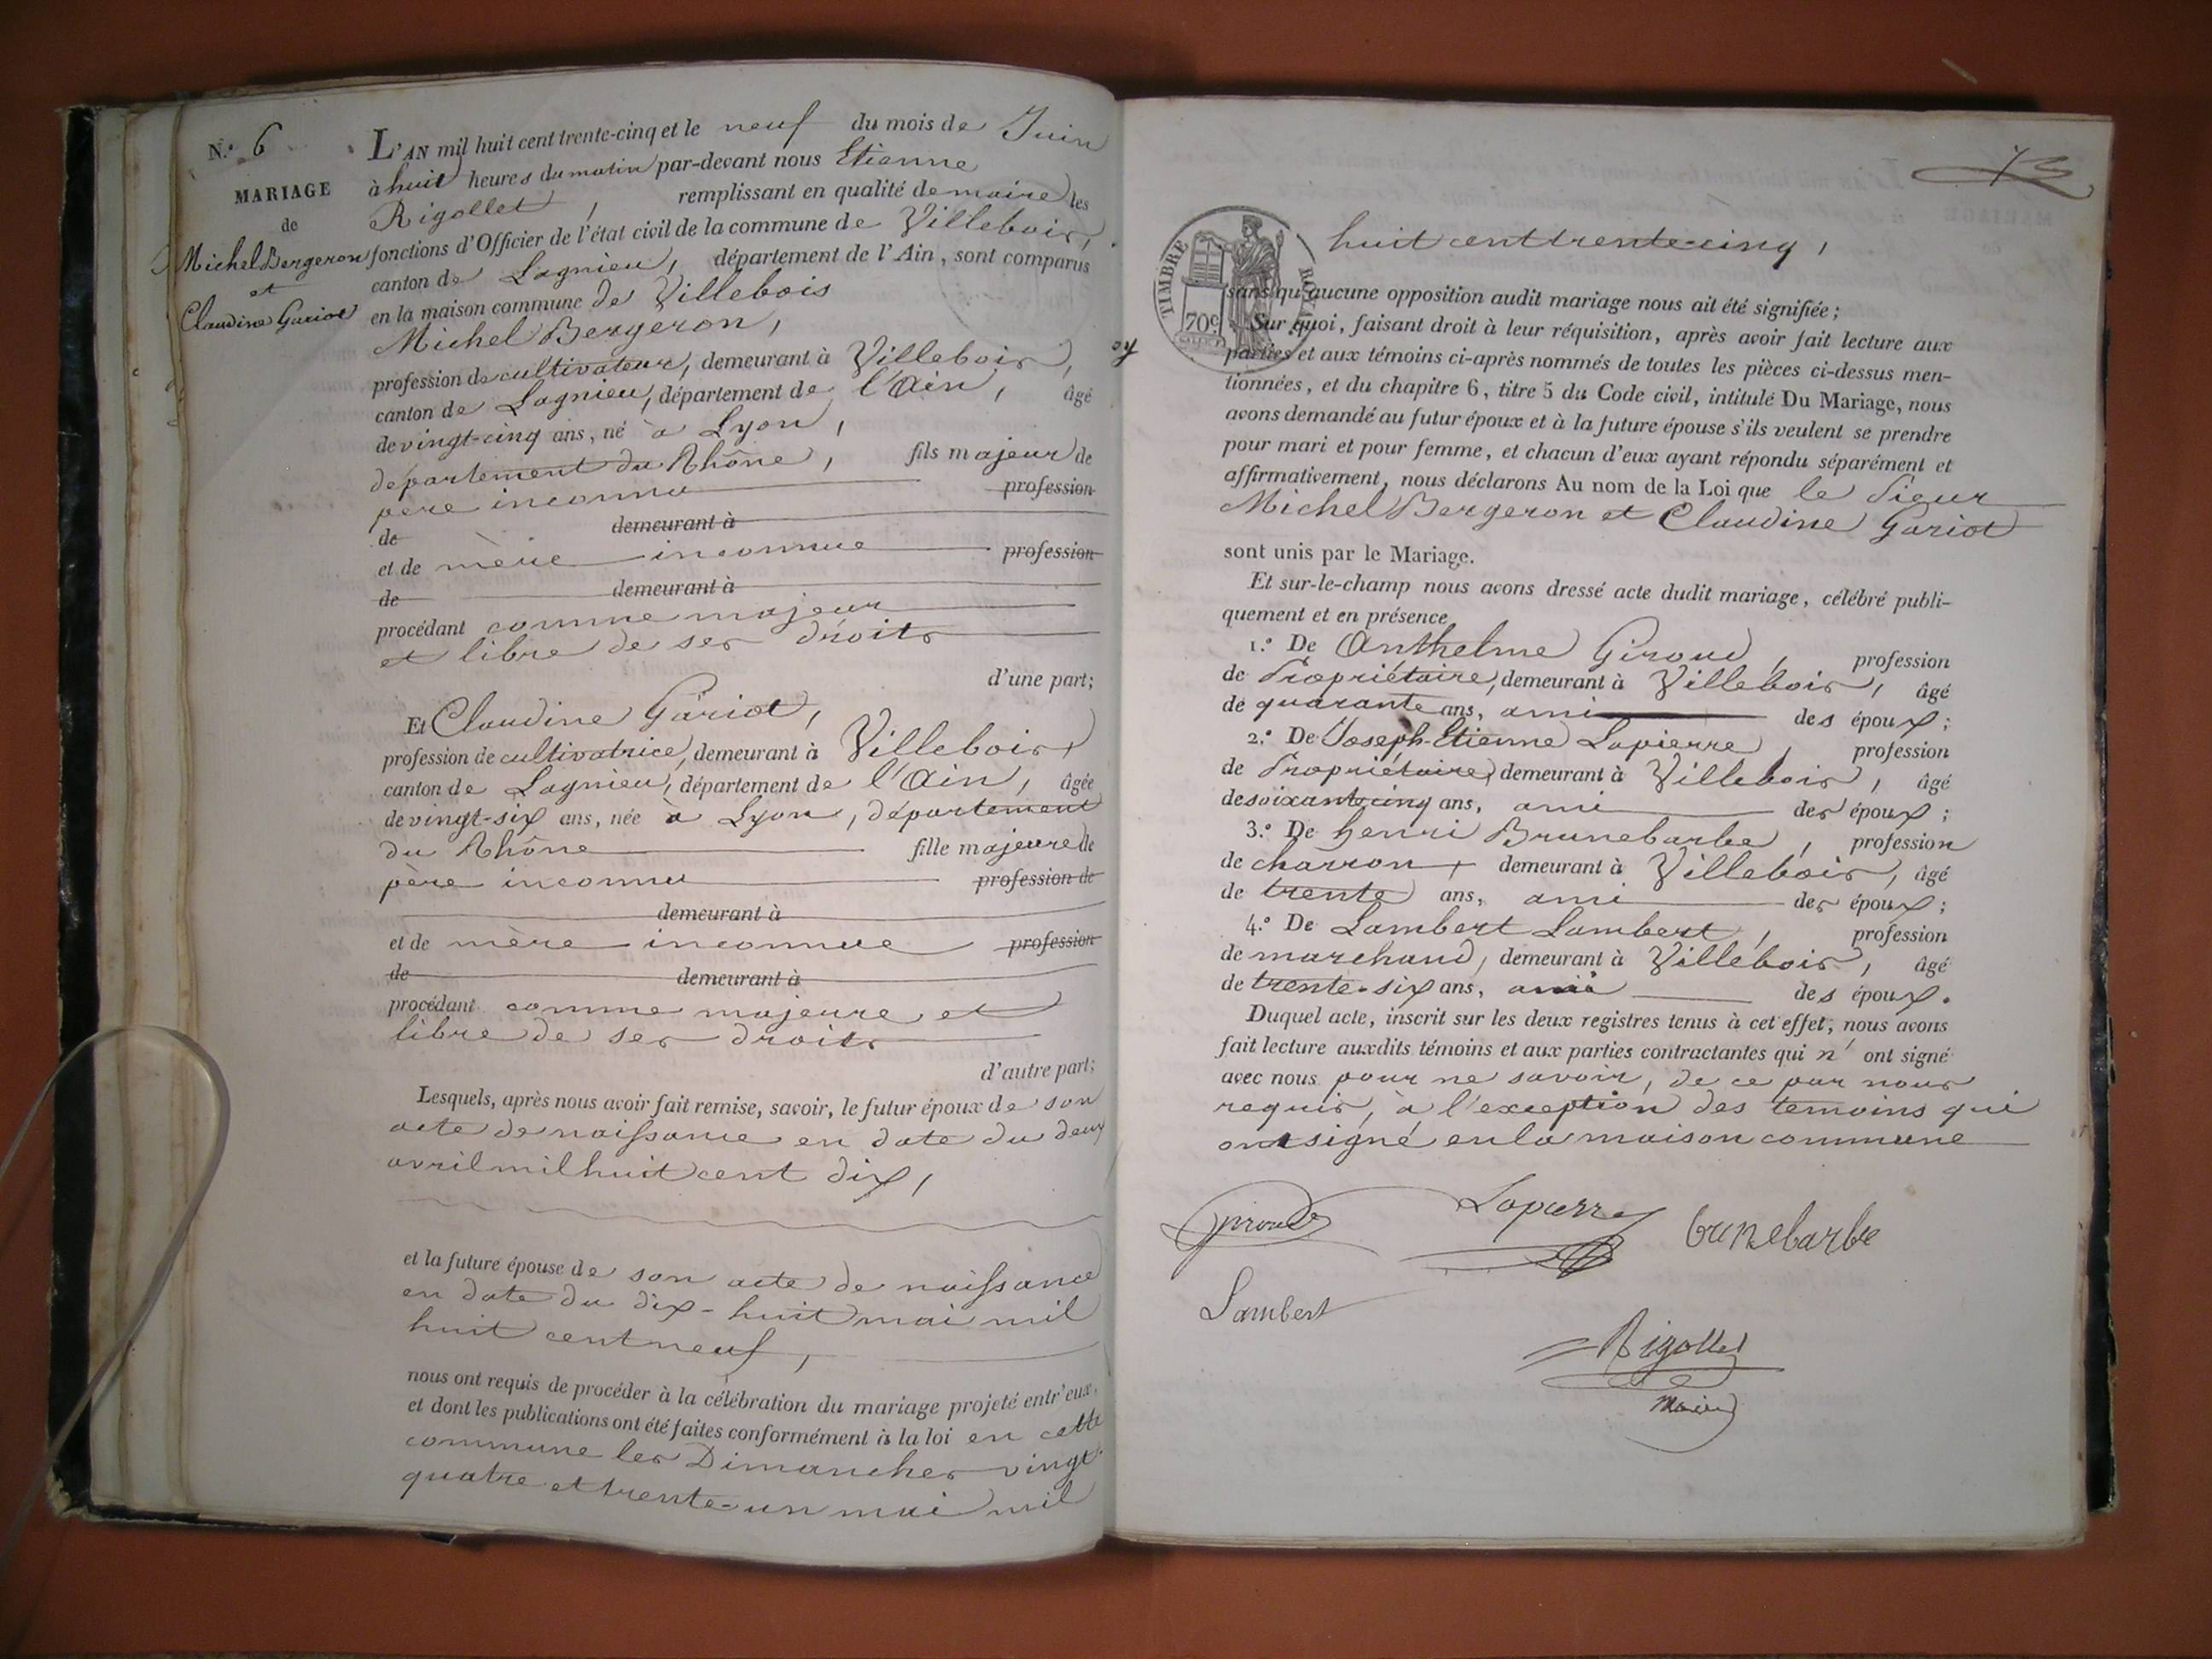 N.º 6
MARIAGE
de
Michel Bergeron
et
Claudine Gariot
L'AN mil huit cent trente-cinq et le neuf du mois de Juin
à huit heures du matin par-devant nous Etienne
Rigollet, remplissant en qualité de maire les
fonctions d'Officier de l'état civil de la commune de Villebois,
canton de Lagnieu, département de l'Ain, sont comparus
en la maison commune de Villebois
Michel Bergeron,
profession de cultivateur, demeurant à Villebois,
canton de Lagnieu, département de l'Ain, âgé
de vingt-cinq ans, né à Lyon,
département du Rhône, fils majeur de
père inconnu profession
de demeurant à
et de mère inconnue profession
de demeurant à
procédant comme majeur
et libre de ses droits
d'une part;
Et Claudine Gariot,
profession de cultivatrice, demeurant à Villebois,
canton de Lagnieu, département de l'Ain, âgée
de vingt-six ans, née à Lyon, département
du Rhône fille majeure de
père inconnu profession de
demeurant à
et de mère inconnue profession
de demeurant à
procédant comme majeure et
libre de ses droits
d'autre part;
Lesquels, après nous avoir fait remise, savoir, le futur époux de son
acte de naissance en date du deux
avril mil huit cent dix,
et la future épouse de son acte de naissance
en date du dix-huit mai mil
huit cent neuf,
nous ont requis de procéder à la célébration du mariage projeté entr'eux,
et dont les publications ont été faites conformément à la loi en cette
commune les Dimanches vingt-
quatre et trente-un mai mil
TIMBRE ROYAL
70c
huit cent trente-cinq,
sans qu'aucune opposition audit mariage nous ait été signifiée;
Sur quoi, faisant droit à leur réquisition, après avoir fait lecture aux
parties et aux témoins ci-après nommés de toutes les pièces ci-dessus men-
tionnées, et du chapitre 6, titre 5 du Code civil, intitulé Du Mariage, nous
avons demandé au futur époux et à la future épouse s'ils veulent se prendre
pour mari et pour femme, et chacun d'eux ayant répondu séparément et
affirmativement, nous déclarons Au nom de la Loi que le Sieur
Michel Bergeron et Claudine Gariot
sont unis par le Mariage.
Et sur-le-champ nous avons dressé acte dudit mariage, célébré publi-
quement et en présence
1.º De Anthelme Giroud, profession
de Propriétaire, demeurant à Villebois, âgé
de quarante ans, ami des époux;
2.º De Joseph-Etienne Lapierre, profession
de Propriétaire, demeurant à Villebois, âgé
de soixante cinq ans, ami des époux;
3.º De henri Brunebarbe, profession
de charron, demeurant à Villebois, âgé
de trente ans, ami des époux;
4.º De Lambert Lambert, profession
de marchand, demeurant à Villebois, âgé
de trente-six ans, ami des époux.
Duquel acte, inscrit sur les deux registres tenus à cet effet, nous avons
fait lecture auxdits témoins et aux parties contractantes qui n' ont signé
avec nous pour ne savoir, de ce par nous
requis, à l'exception des témoins qui
ont signé en la maison commune
Giroud Lapierre brunebarbe
Lambert
Rigollet
Maire